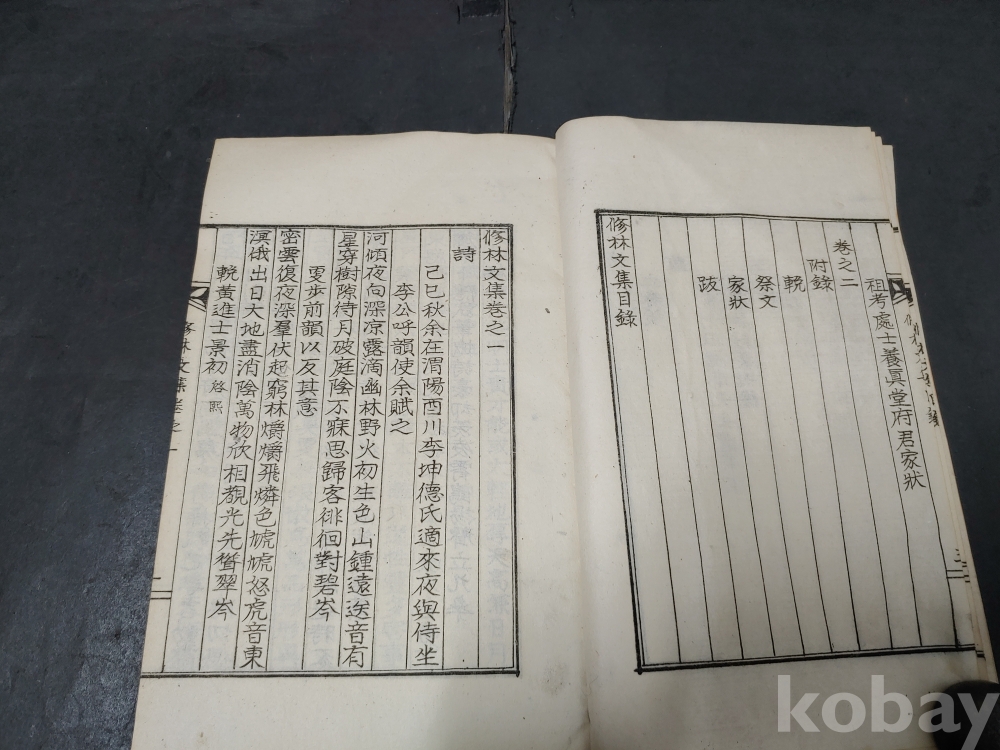 祖考處士養眞堂府君家狀
卷之二
附錄
輓
祭文
家狀
跋
修林文集目錄
三
修林文集卷之一
詩
己巳秋余在渭陽酉川李坤德氏適來夜與侍坐
李公呼韻使余賦之
河傾夜向深凉露滴幽林野火初生色山鍾遠送音有
星穿樹隙待月破庭陰不寐思歸客徘徊對碧岑
更步前韻以反其意
密雲復夜深羣伏起窮林爝爝飛燐色虓虓怒虎音東
溟俄出日大地盡消陰萬物欣相覩光先聳翠岑
輓黃進士景初 熙
修林文集卷之一
kobay